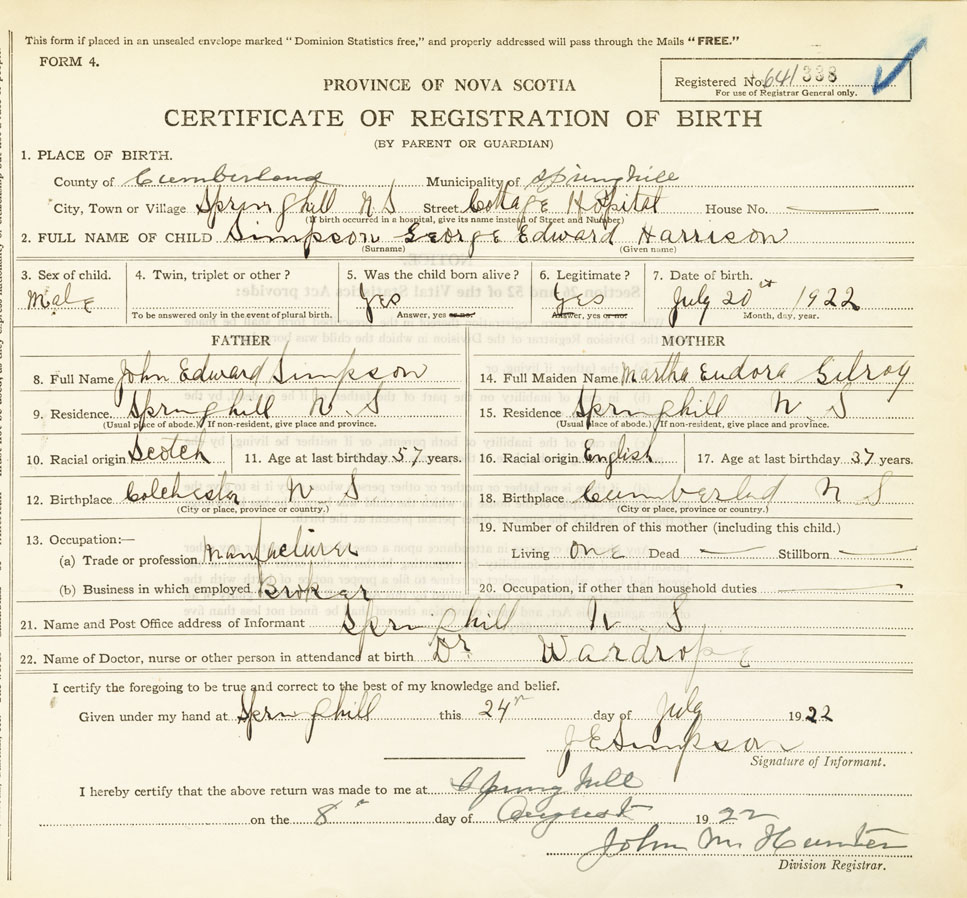 This form if placed in an unsealed envelope marked "Dominion Statistics free," and properly addressed will pass through the Mails "FREE."
FORM 4.
Registered No. 641 338
For use of Registrar General only.
PROVINCE OF NOVA SCOTIA
CERTIFICATE OF REGISTRATION OF BIRTH
(BY PARENT OR GUARDIAN)
1. PLACE OF BIRTH.
County of Cumberland Municipality of Springhill
City, Town or Village Springhill N S Street Cottage Hospital House No.
(If birth occurred in a hospital, give its name instead of Street and Number)
2. FULL NAME OF CHILD Simpson George Edward Harrison
(Surname) (Given name)
3. Sex of child. 4. Twin, triplet or other? 5. Was the child born alive? 6. Legitimate? 7. Date of birth.
Male Yes Yes July 20th 1922
To be answered only in the event of plural birth. Answer, yes or no. Answer, yes or no. Month, day, year.
FATHER MOTHER
8. Full Name John Edward Simpson 14. Full Maiden Name Martha Eudora Gilroy
9. Residence. Springhill N. S 15. Residence Springhill N. S
(Usual place of abode.) If non-resident, give place and province. (Usual place of abode.) If non-resident, give place and province.
10. Racial origin Scotch 11. Age at last birthday 57 years. 16. Racial origin English 17. Age at last birthday 37 years.
12. Birthplace Colchester N S 18. Birthplace Cumberlad N S
(City or place, province or country.) (City or place, province or country.)
13. Occupation:— 19. Number of children of this mother (including this child.)
(a) Trade or profession Manfacturer Living one Dead Stillborn
(b) Business in which employed Broker 20. Occupation, if other than household duties
21. Name and Post Office address of Informant Springhill N S
22. Name of Doctor, nurse or other person in attendance at birth Dr. Wardrope
I certify the foregoing to be true and correct to the best of my knowledge and belief.
Given under my hand at Springhill this 24 day of July 1922
J E Simpson
Signature of Informant.
I hereby certify that the above return was made to me at Spring hill
on the 8 day of August 1922
John M. Hunter
Division Registrar.